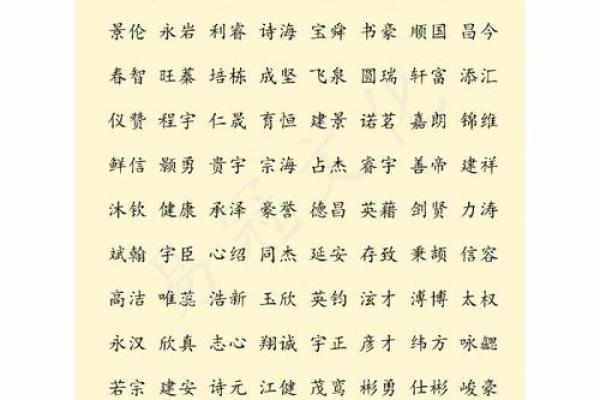 景伦 永岩 利睿 诗海 宝舜 书豪 顺国 昌今
春智 旺蓁 培栋 成坚 飞泉 圆瑞 轩富 添汇
仪赞 程宇 仁晟 育恒 建景 诺茗 嘉朗 锦维
鲜信 颢勇 贵宇 宗海 占杰 睿宇 善帝 建祥
沐钦 健康 承泽 豪誉 德昌 英藉 剑贤 力涛
斌翰 宇臣 心绍 同杰 延安 存致 秉颉 信容
高洁 唯蕊 浩新 玉欣 英钧 泫才 溥博 太权
永汉 欣真 志心 翔诚 宇正 彦才 纬方 咏勰
若宗 建安 诗元 江健 茂鸾 彬勇 仕彬 峻豪